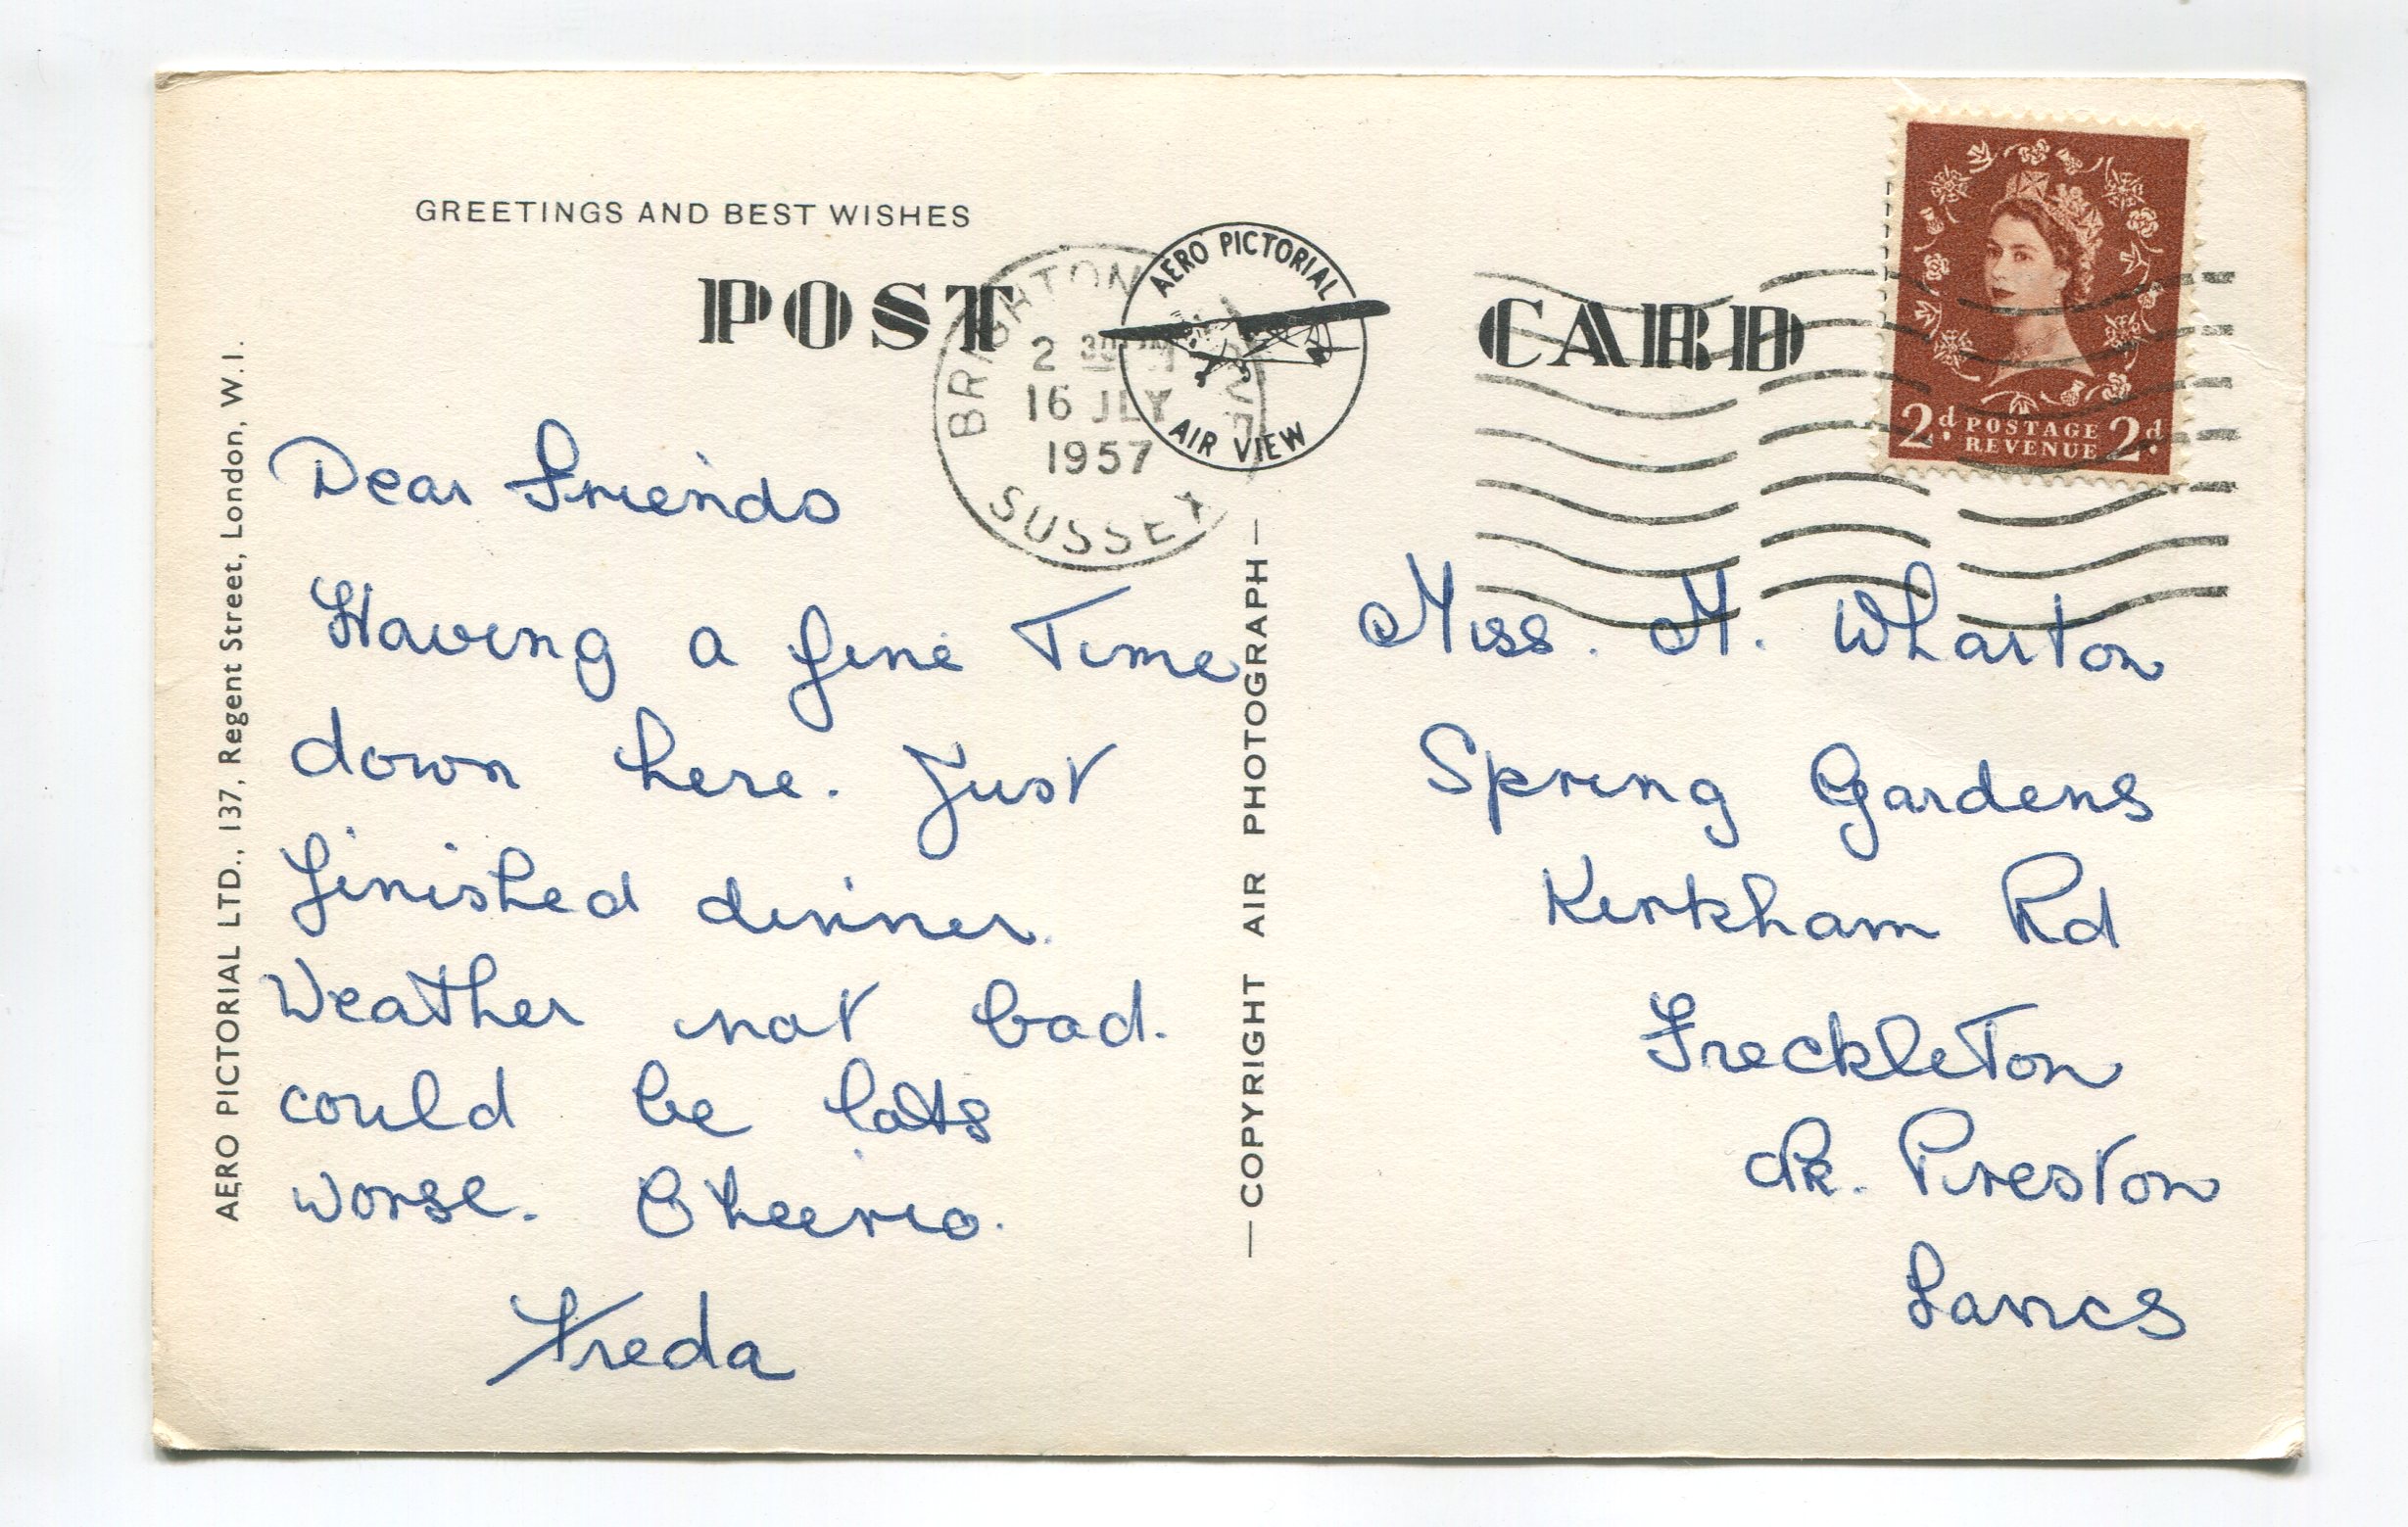 GREETINGS AND BEST WISHES
POST CARD
AERO PICTORIAL
AIR VIEW
BRIGHTON
2 30 PM
16 JLY
1957
SUSSEX
2d. POSTAGE REVENUE 2d.
AERO PICTORIAL LTD., 137, Regent Street, London, W.1.
— COPYRIGHT AIR PHOTOGRAPH —
Dear Friends
Having a fine Time
down here. Just
finished dinner.
Weather not bad.
could be lots
worse. Cheerio.
Freda
Miss. M. Wharton
Spring Gardens
Kirkham Rd
Freckleton
Nr. Preston
Lancs